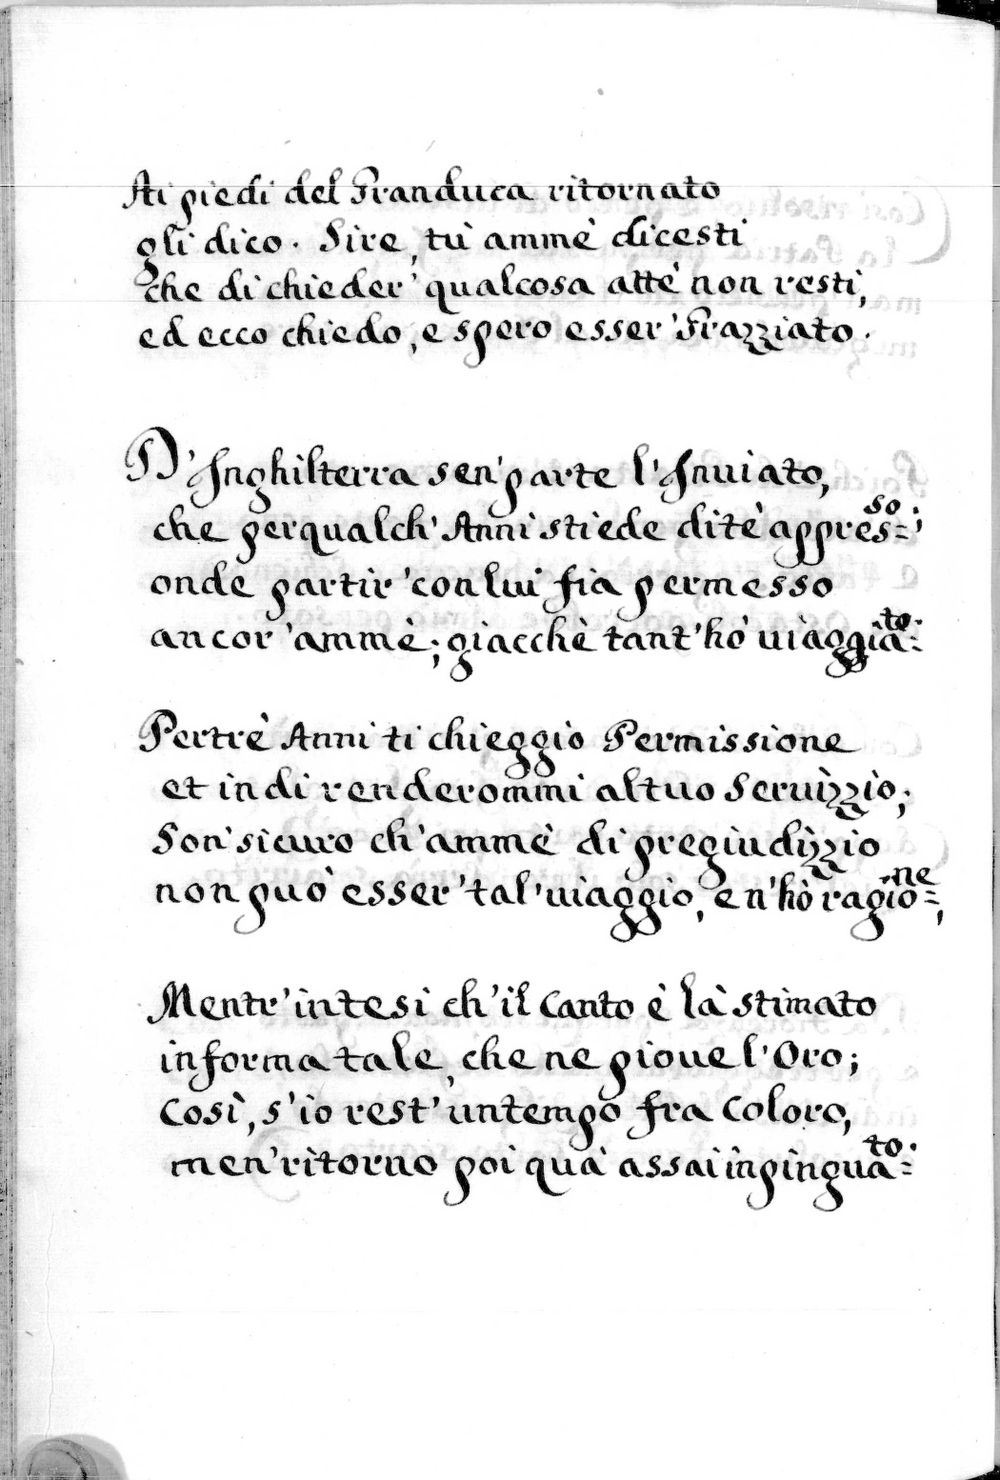 Ai piedi del Granduca ritornato
gli dico. Sire, tù ammè dicesti
che di chieder' qualcosa attè non resti,
ed ecco chiedo, e spero esser' Grazziato.
D'Inghilterra sen' parte l'Inuiato,
che per qualch' Anni stiede di tè appres=so;
onde partir' con lui fia permesso
ancor' ammè; giacchè tant' hò uiaggia=to.
Per trè Anni ti chieggio Permissione
et indi renderommi al tuo Seruizzio;
Son' sicuro ch' ammè di pregiudizzio
non può esser' tal' uiaggio, e n' hò ragio=ne,
Mentr' intesi ch' il Canto è là stimato
in forma tale, che ne pioue l'Oro;
Così, s'io rest' un tempo fra Coloro,
men' ritorno poi quà assai inpingua=to.